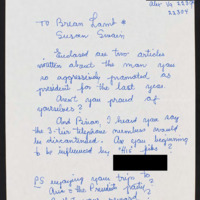 Alex Va 223
22304
To Brian Lamb &
Susan Swain
Enclosed are two articles
written about the man you
so aggressively promoted as
president for the last year.
Aren't you proud of
yourselves?
And Brian, I heard you say
the 3-tier telephone numbers should
be discontinued. Are you beginning
to be influenced by "His" jabs?
PS enjoying your trips to
the President party?